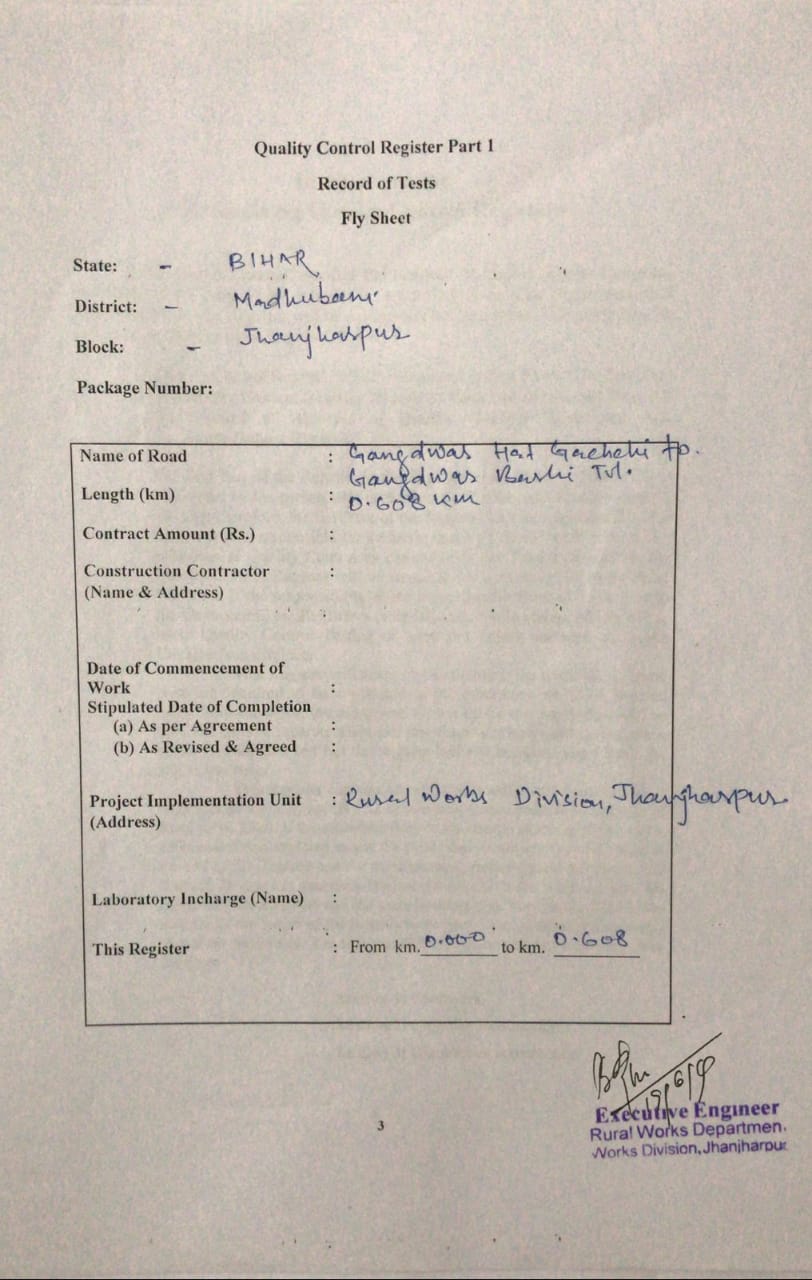 Quality Control Register Part 1
Record of Tests
Fly Sheet
State: - BIHAR
District: - Madhubani
Block: - Jhanjharpur
Package Number:
Name of Road : Gangdwar Hat Gachchi to.
Gangdwar Tol.
Length (km) : 0.608 KM
Contract Amount (Rs.) :
Construction Contractor :
(Name & Address)
Date of Commencement of
Work :
Stipulated Date of Completion
(a) As per Agreement :
(b) As Revised & Agreed :
Project Implementation Unit : Rural Works Division, Jhanjharpur
(Address)
Laboratory Incharge (Name) :
This Register : From km. 0.000 to km. 0.608
Executive Engineer
Rural Works Departmen
Works Division, Jhanjharpur
3